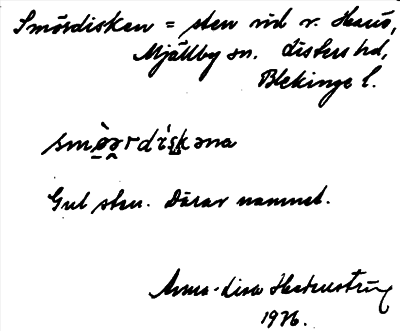 Smördisken = sten vid v. Hanö,
Mjällby sn. Listers hd,
Blekinge l.
smö̀ərdískəna
Gul sten. Därav namnet.
Anna-Lisa
1926.